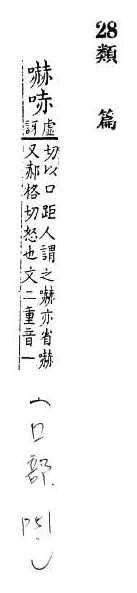 28類篇
嚇哧虛訝
切以口距人謂之嚇亦省嚇
又郝格切怒也文二重音一
(口部門)